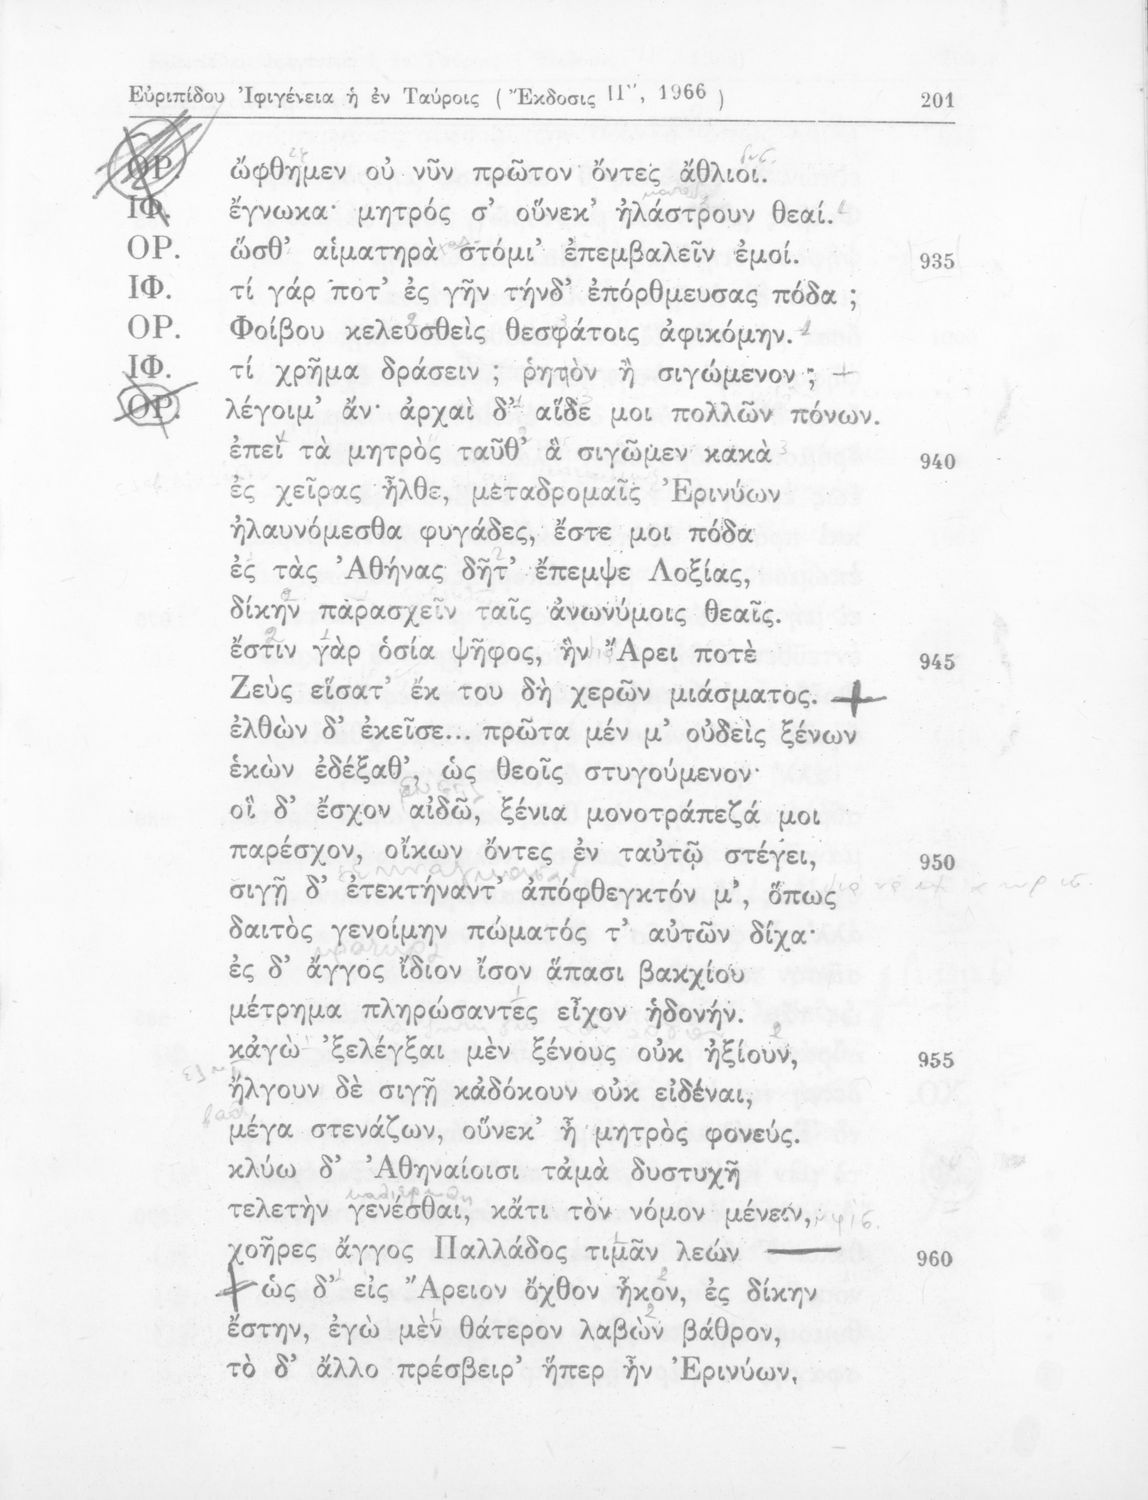 Εὐριπίδου Ἰφιγένεια ἡ ἐν Ταύροις (Ἔκδοσις ΙΙ", 1966) 201
ΟΡ. ὤφθημεν οὐ νῦν πρῶτον ὄντες ἄθλιοι.
ΙΦ. ἔγνωκα· μητρός σ' οὕνεκ' ἠλάστρουν θεαί.
ΟΡ. ὥσθ' αἱματηρὰ στόμι' ἐπεμβαλεῖν ἐμοί. 935
ΙΦ. τί γάρ ποτ' ἐς γῆν τήνδ' ἐπόρθμευσας πόδα ;
ΟΡ. Φοίβου κελευσθεὶς θεσφάτοις ἀφικόμην.
ΙΦ. τί χρῆμα δράσειν ; ῥητὸν ἢ σιγώμενον ;
ΟΡ. λέγοιμ' ἄν· ἀρχαὶ δ' αἵδε μοι πολλῶν πόνων.
ἐπεὶ τὰ μητρὸς ταῦθ' ἃ σιγῶμεν κακὰ 940
ἐς χεῖρας ἦλθε, μεταδρομαῖς Ἐρινύων
ἠλαυνόμεσθα φυγάδες, ἔστε μοι πόδα
ἐς τὰς Ἀθήνας δῆτ' ἔπεμψε Λοξίας,
δίκην παρασχεῖν ταῖς ἀνωνύμοις θεαῖς.
ἔστιν γὰρ ὁσία ψῆφος, ἣν Ἄρει ποτὲ 945
Ζεὺς εἵσατ' ἔκ του δὴ χερῶν μιάσματος.
ἐλθὼν δ' ἐκεῖσε... πρῶτα μέν μ' οὐδεὶς ξένων
ἑκὼν ἐδέξαθ', ὡς θεοῖς στυγούμενον·
οἳ δ' ἔσχον αἰδῶ, ξένια μονοτράπεζά μοι
παρέσχον, οἴκων ὄντες ἐν ταὐτῷ στέγει, 950
σιγῇ δ' ἐτεκτήναντ' ἀπόφθεγκτόν μ', ὅπως
δαιτὸς γενοίμην πώματός τ' αὐτῶν δίχα·
ἐς δ' ἄγγος ἴδιον ἴσον ἅπασι βακχίου
μέτρημα πληρώσαντες εἶχον ἡδονήν.
κἀγὼ 'ξελέγξαι μὲν ξένους οὐκ ἠξίουν, 955
ἤλγουν δὲ σιγῇ κἀδόκουν οὐκ εἰδέναι,
μέγα στενάζων, οὕνεκ' ἦ μητρὸς φονεύς.
κλύω δ' Ἀθηναίοισι τἀμὰ δυστυχῆ
τελετὴν γενέσθαι, κἄτι τὸν νόμον μένειν,
χοῆρες ἄγγος Παλλάδος τιμᾶν λεών 960
ὡς δ' εἰς Ἄρειον ὄχθον ἧκον, ἐς δίκην
ἔστην, ἐγὼ μὲν θάτερον λαβὼν βάθρον,
τὸ δ' ἄλλο πρέσβειρ' ἥπερ ἦν Ἐρινύων,